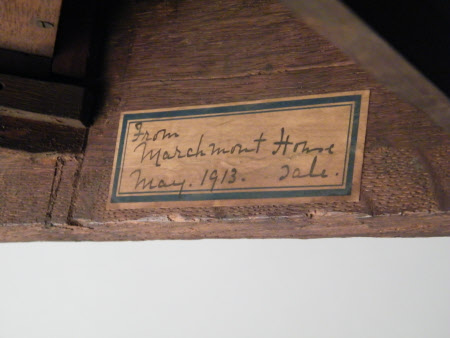 From
Marchmont House
May. 1913. Sale.